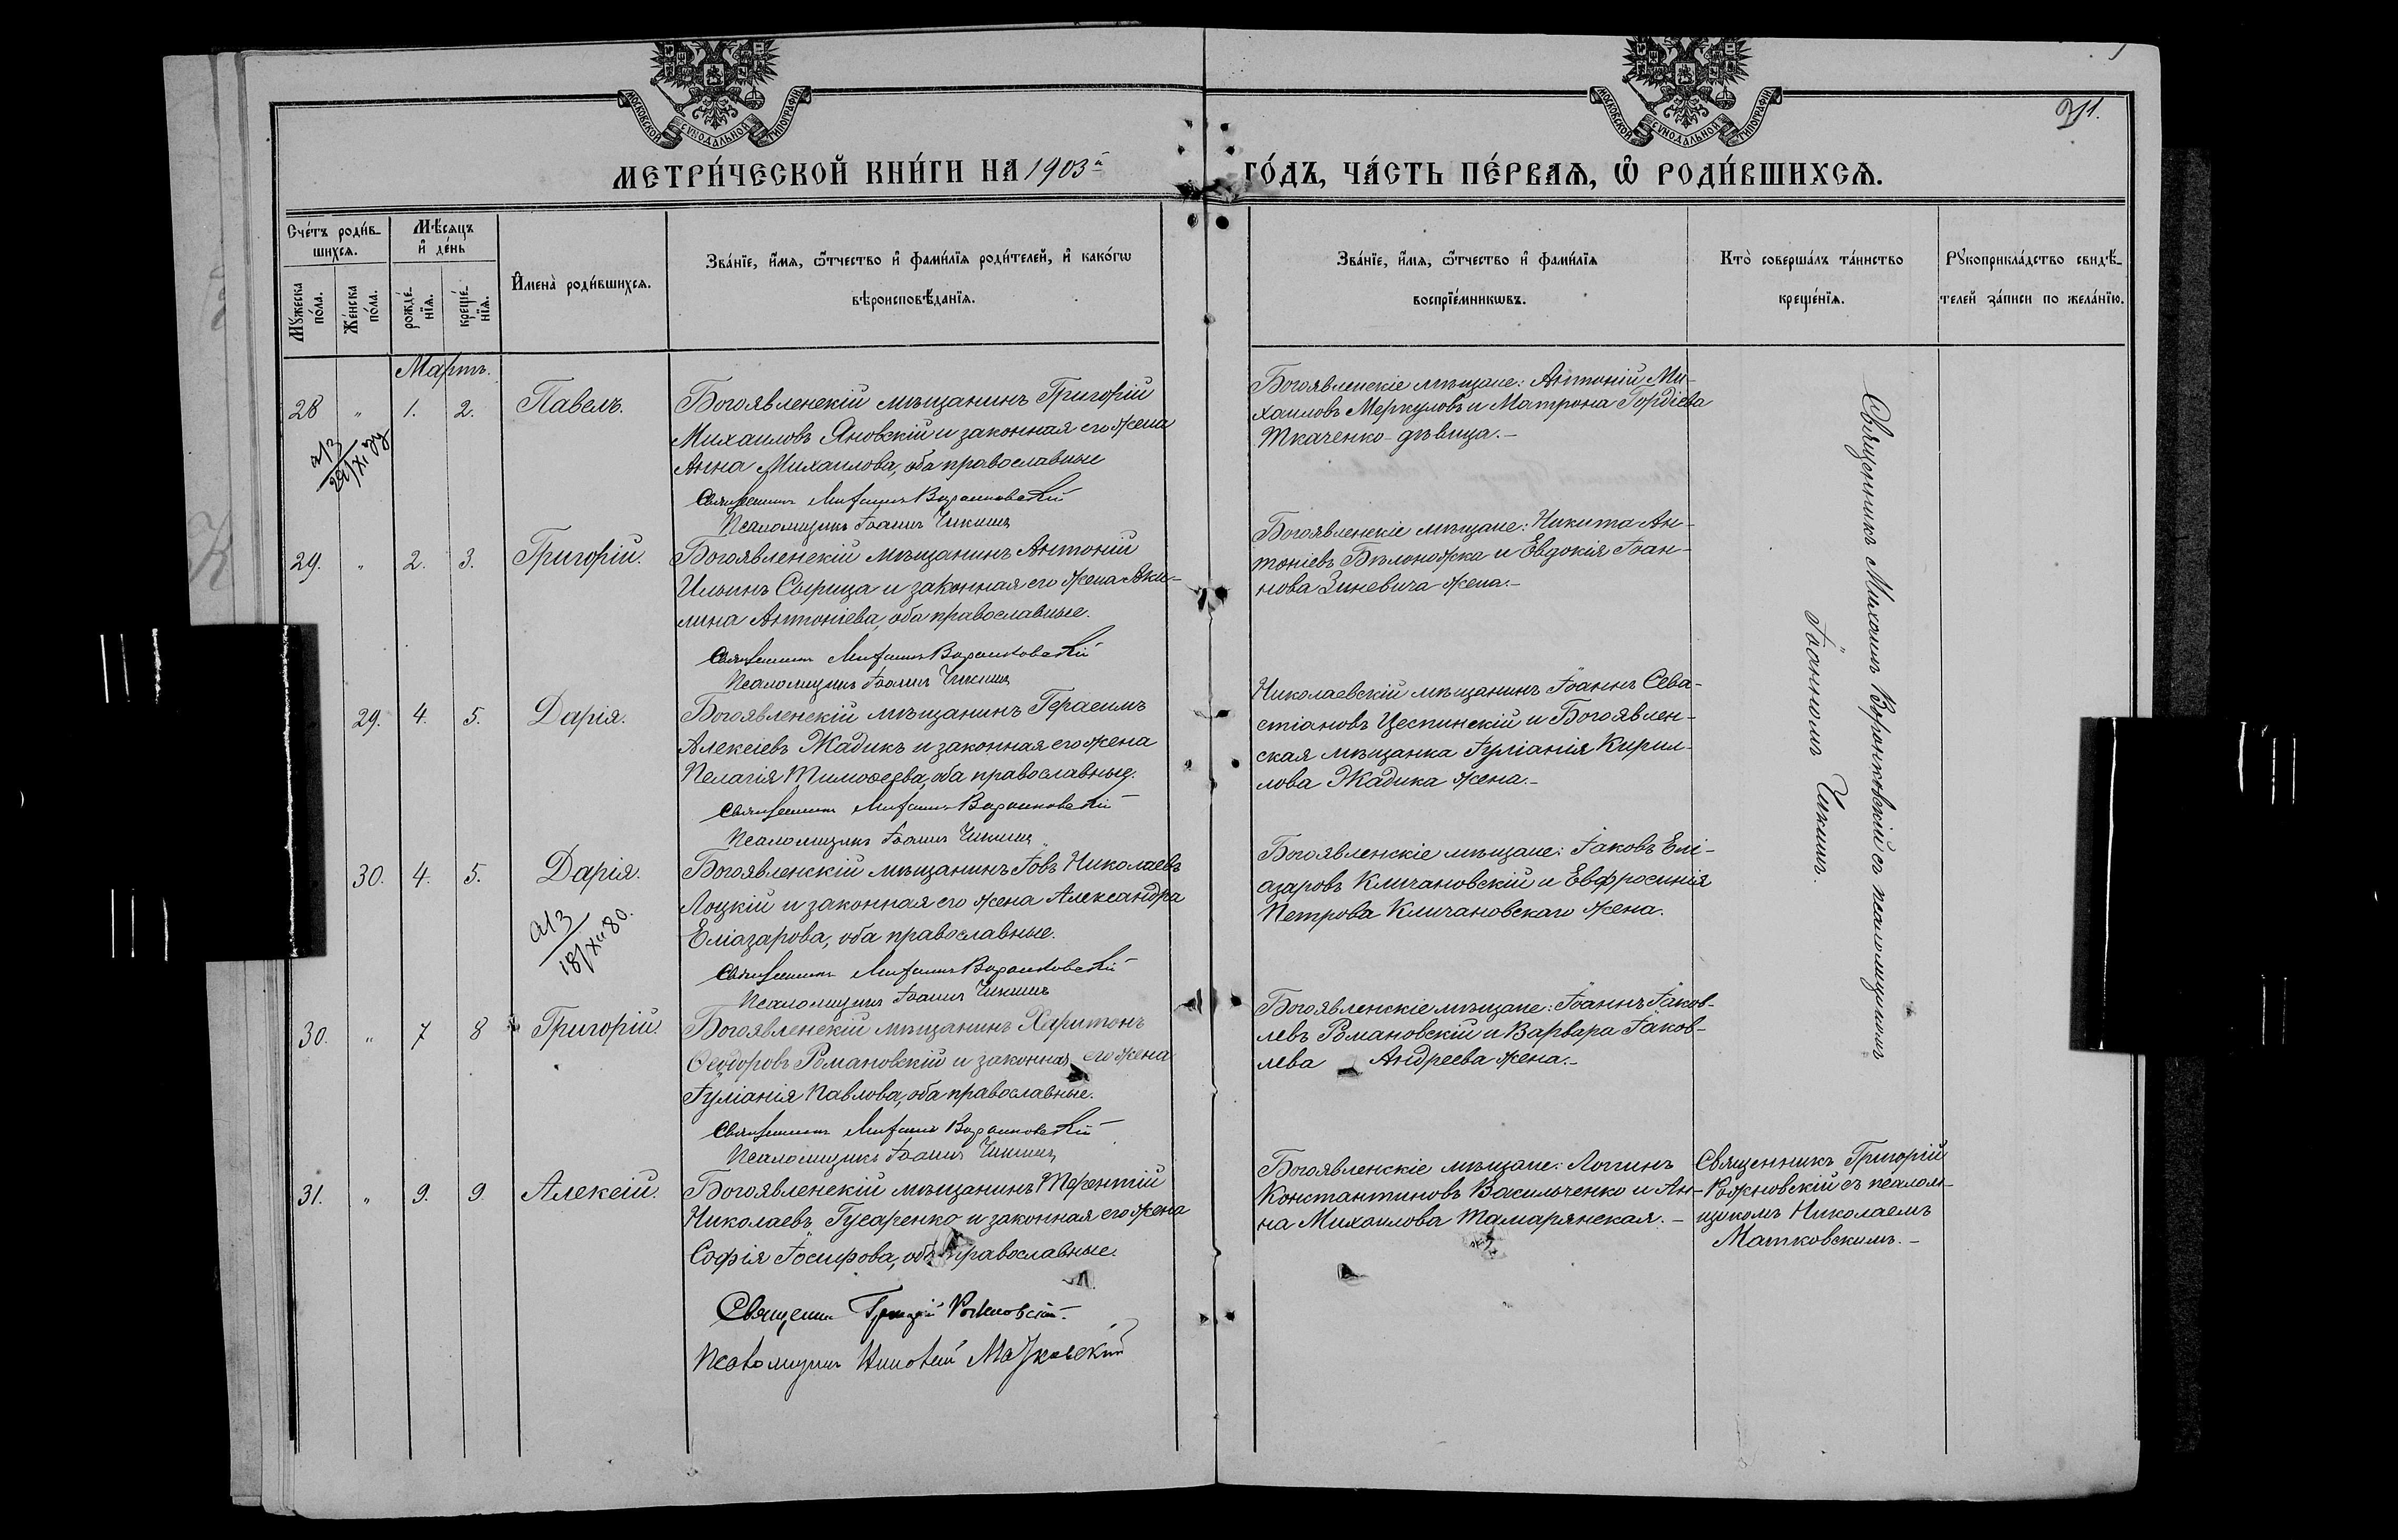 МОСКОВСКОЙ СѴНОДАЛЬНОЙ ТИПОГРАФІИ
МОСКОВСКОЙ СѴНОДАЛЬНОЙ ТИПОГРАФІИ
911.
МЕТРИ́ЧЕСКОЙ КНИ́ГИ НА 1903й
ГО́ДЪ, ЧА́СТЬ ПЕ́РВАѦ, Ѡ РОДИ́ВШИХСѦ.
Сче́тъ роди́в-
шихсѧ.
Мꙋжеска по́ла.
Же́нска по́ла.
Мѣ́сѧцъ и҆ де́нь
рожде́-нїѧ.
креще́-нїѧ.
И҆мена̀ роди́вшихсѧ.
Зва́нїе, и҆́мѧ, ѻ҆́тчество и҆ фами́лїѧ роди́телей, и҆ како́гѡ
вѣроисповѣ́данїѧ.
Зва́нїе, и҆́мѧ, ѻ҆́тчество и҆ фами́лїѧ
воспрїе́мникѡвъ.
Кто̀ соверша́лъ та́инство
креще́нїѧ.
Рꙋкоприкла́дство свидѣ́-
телей за́писи по жела́нїю.
Мартъ.
28 " 1. 2. Павелъ.
Богоявленскій мѣщанинъ Григорій
Михаиловъ Яновскій и законная его жена
Анна Михаилова, оба православные
Священникъ Михаилъ Воронковскій
Псаломщикъ Іоаннъ Чикишъ
Богоявленскіе мѣщане: Антоній Ми-
хаиловъ Меркуловъ и Матрона Гордіева
Ткаченко- дѣвица.-
29. " 2. 3. Григорій.
Богоявленскій мѣщанинъ Антоній
Ильинъ Сырица и законная его жена Аки-
лина Антоніева, оба православные.
Священникъ Михаилъ Воронковскій
Псаломщикъ Іоаннъ Чикишъ
Богоявленскіе мѣщане: Никита Ан-
тоніевъ Бѣлоножка и Евдокія Іоан-
нова Зиневича жена.-
29. 4. 5. Дарія.
Богоявленскій мѣщанинъ Герасимъ
Алексіевъ Жадикъ и законная его жена
Пелагія Тимоѳеева, оба православные.
Священникъ Михаилъ Воронковскій
Псаломщикъ Іоаннъ Чикишъ
Николаевскій мѣщанинъ Іоаннъ Сева-
стіановъ Цеспинскій и Богоявлен-
ская мѣщанка Іуліанія Кирил-
лова Жадика жена.-
30. 4. 5. Дарія.
Богоявленскій мѣщанинъ Іовъ Николаевъ
Лоцкій и законная его жена Александра
Еліазарова, оба православные.
Священникъ Михаилъ Воронковскій
Псаломщикъ Іоаннъ Чикишъ
Богоявленскіе мѣщане: Іаковъ Елі-
азаровъ Кличановскій и Евфросинія
Петрова Кличановскаго жена.
30. " 7 8 Григорій.
Богоявленскій мѣщанинъ Харитонъ
Ѳеодоровъ Романовскій и законная его жена
Іуліанія Павлова, оба православные.
Священникъ Михаилъ Воронковскій
Псаломщикъ Іоаннъ Чикишъ
Богоявленскіе мѣщане: Іоаннъ Іаков-
левъ Романовскій и Варвара Іаков-
лева Андреева жена.-
Священникъ Михаилъ Воронковскій съ псаломщикомъ
Іоанномъ Чикишъ.
31. " 9. 9 Алексій.
Богоявленскій мѣщанинъ Терентій
Николаевъ Гусаренко и законная его жена
Софія Іосифова, оба православные.
Священникъ Григорій Рожновскій.
Псаломщикъ Николай Матковскій
Богоявленскіе мѣщане: Логгинъ
Константиновъ Васильченко и Ан-
на Михаилова Тамарянская.-
Священникъ Григорій
Рожновскій съ псалом-
щикомъ Николаемъ
Матковскимъ.-